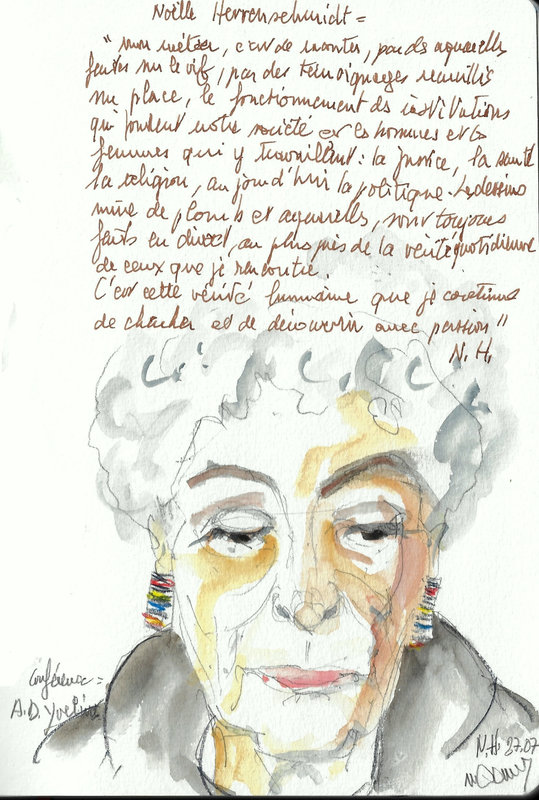 Noëlle Herrenschmidt =
"mon métier, c'est de montrer, par des aquarelles
faites sur le vif, par des témoignages recueillis
sur place, le fonctionnement des institutions
qui fondent notre société et les hommes et les
femmes qui y travaillent : la justice, la santé
la religion, aujourd'hui la politique. Les dessins
mine de plomb et aquarelles, sont toujours
faits en direct, au plus près de la vérité quotidienne
de ceux que je rencontre.
C'est cette vérité humaine que je continue
de chercher et de découvrir avec passion"
N. H.
Conférence =
A.D. Yvelines
N.H. 27.07